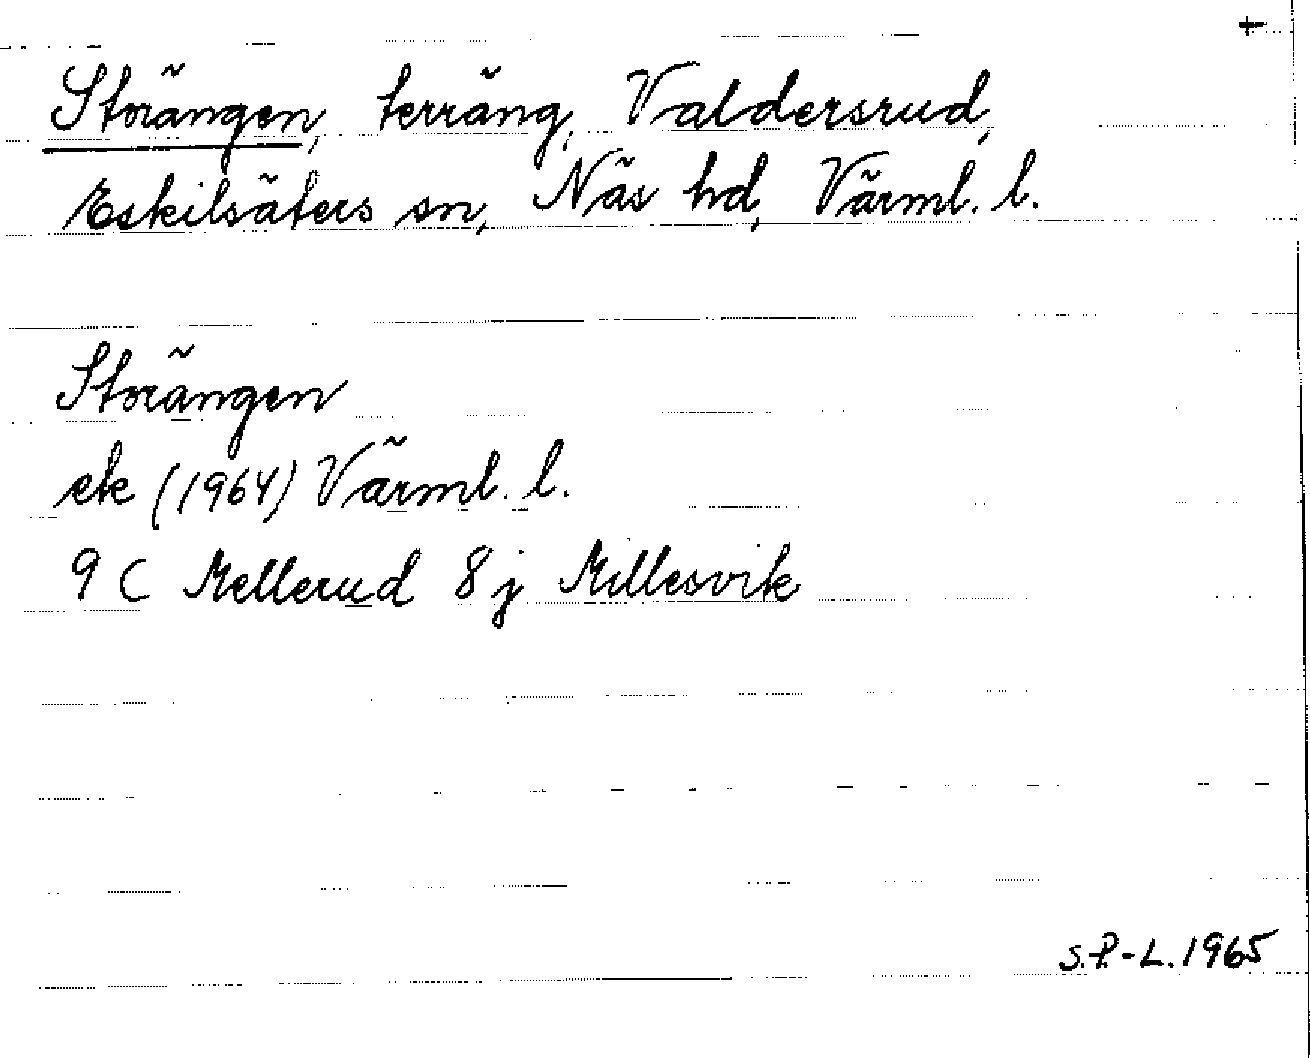 +
Storängen, terräng, Valdersrud,
Eskilsäters sn, Näs hd, Värml. l.
Storängen
ek (1964) Värml. l.
9 C Mellerud 8 j Millesvik
S.P-L. 1965